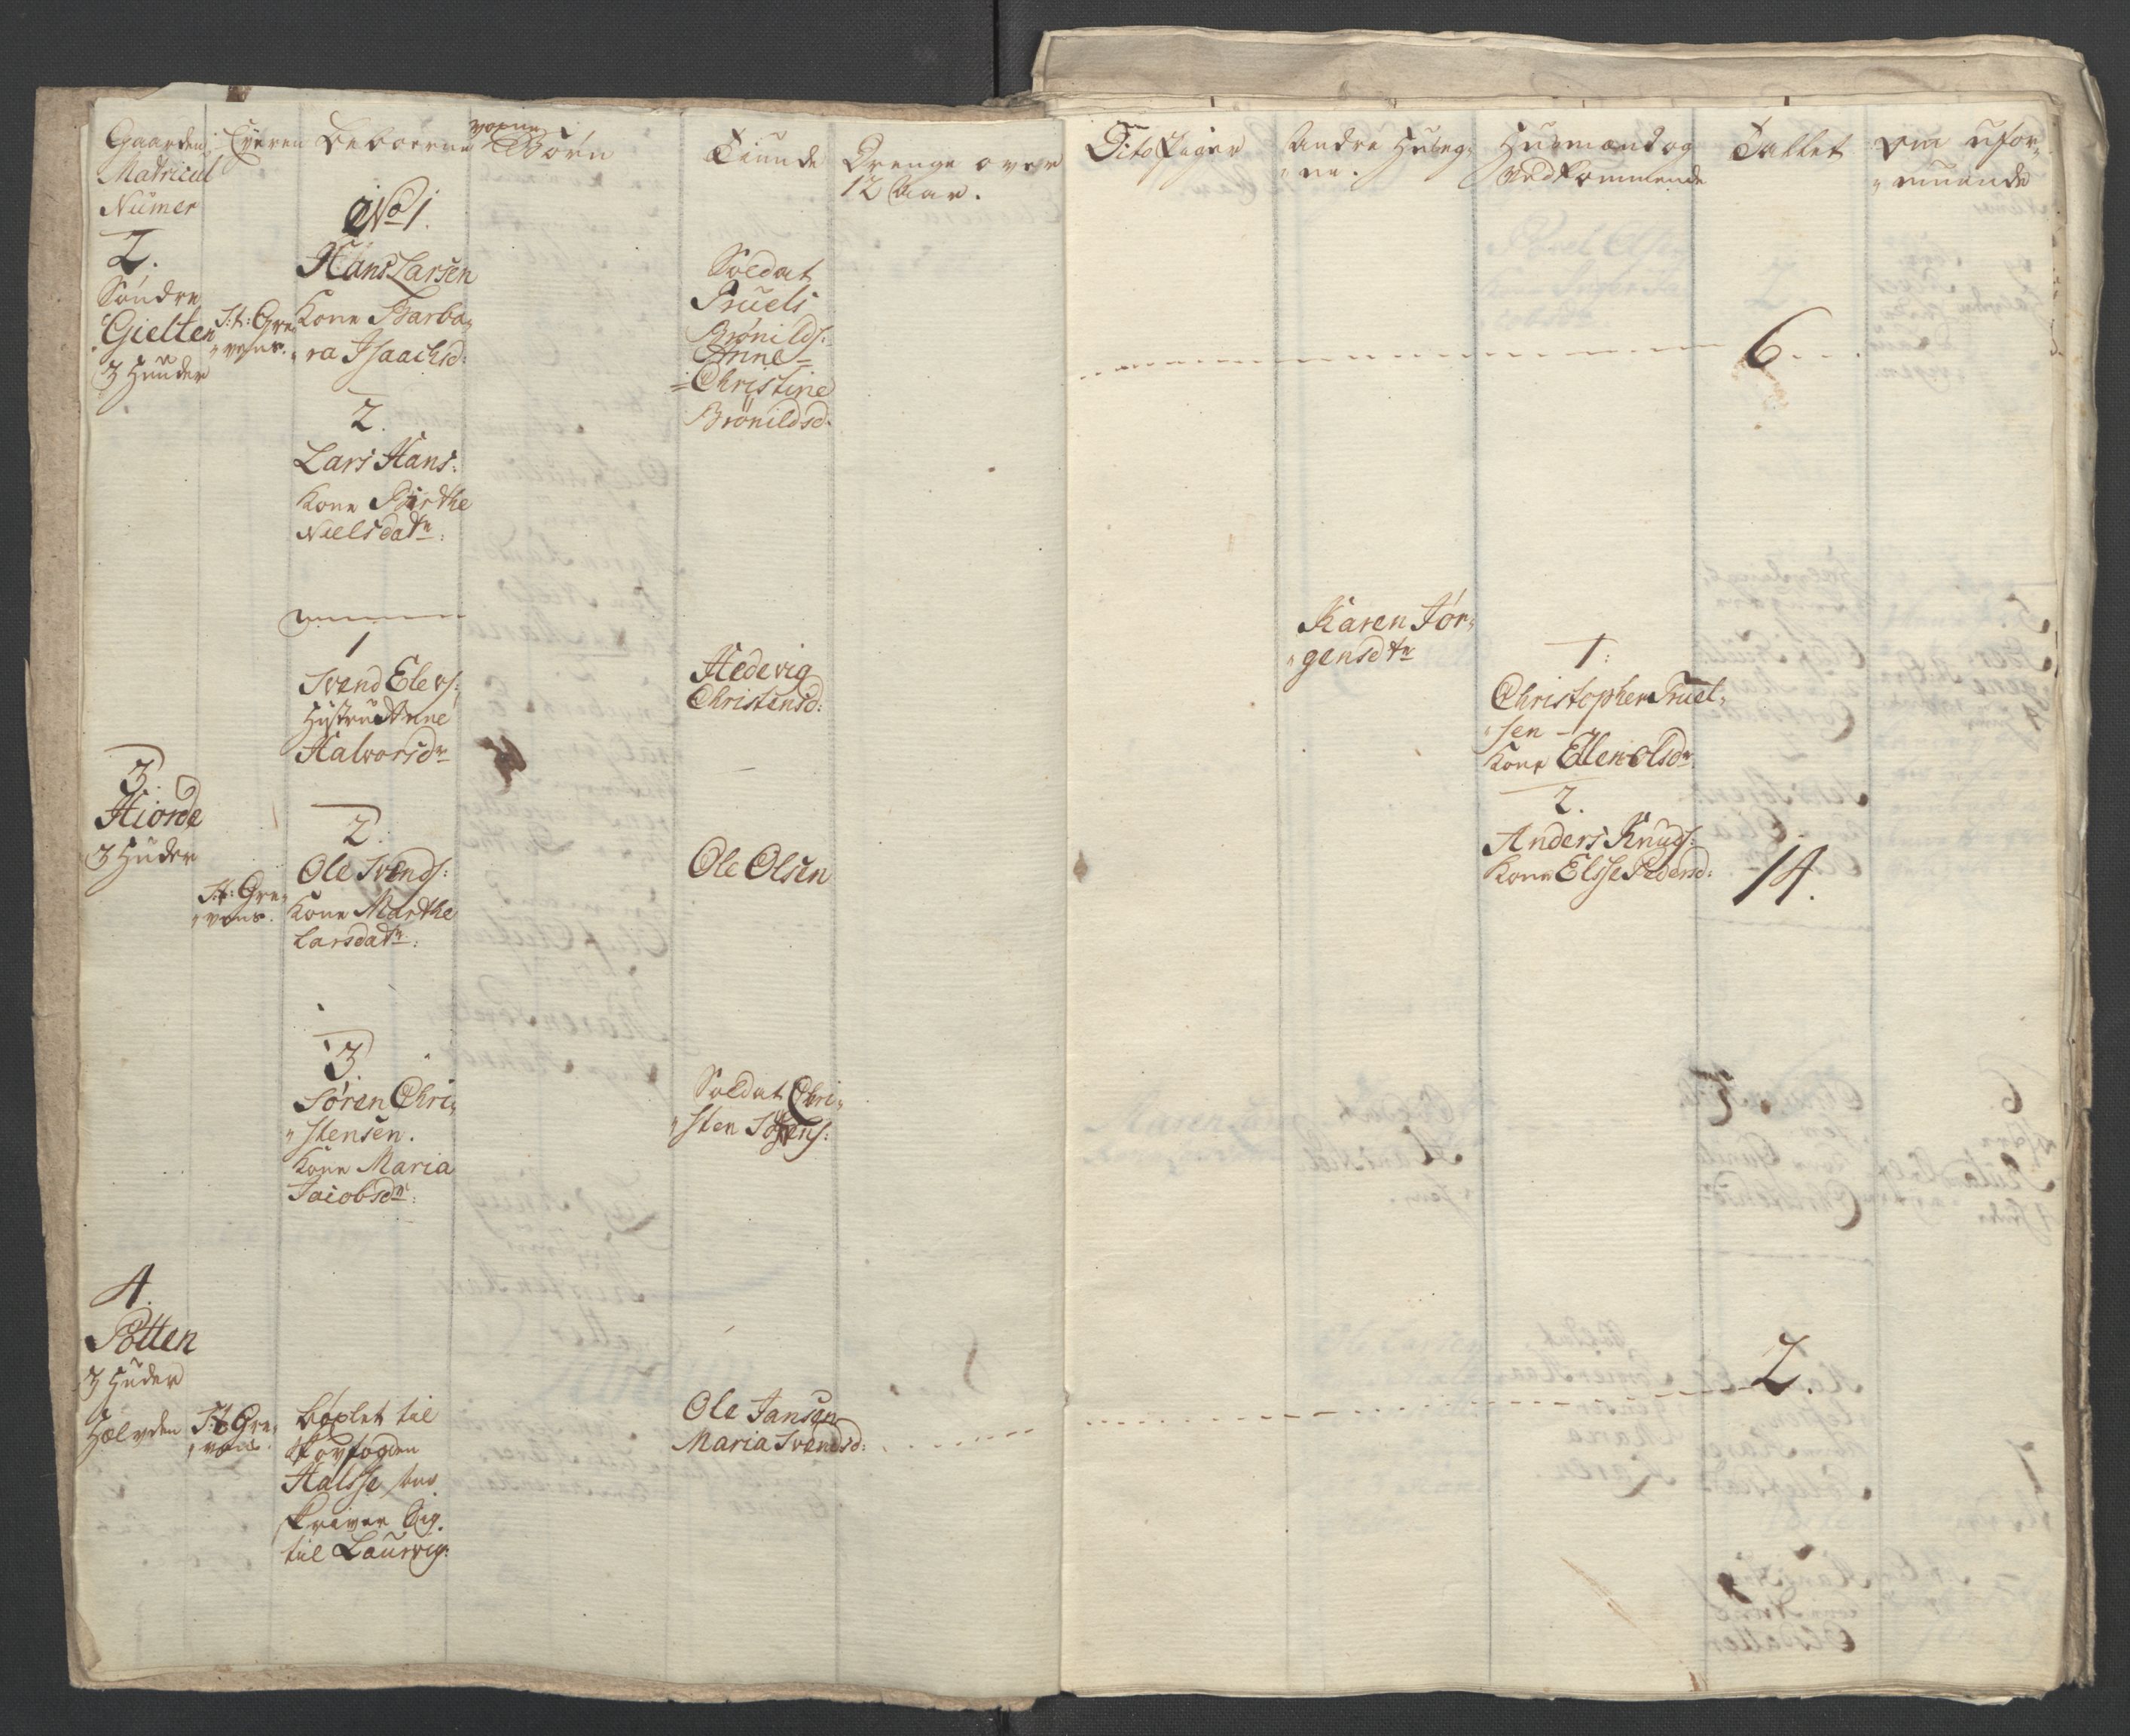 Gaarden
Matricul
Numer
Eyeren
Beboerne
voxne
Börn
Tiunde
Drenge over
12 Aar.
Dito Piger
Andre Huusg-
Huusmænd og
vedkommende
Tallet
Om ufor-
muende
2.
Söndre
Gielten
3 Huuder
H: Gre-
vens.
No 1.
Hans Larsen
Kone Barba-
ra Isaachsd:
Soldat
Truels
Brönilds:
Anne-
Christine
Brönildsd:
6.
2.
Lars Hans:
Kone Birthe
Nielsdatr:
1
Svend Elevs:
Hustru Anne
Halvorsdr
Hedevig
Christensd:
Karen Jör-
gensdtr
1:
Christopher Truel-
sen
Kone Ellen Olsdr
3.
Hiorde
3 Huder
H: Gre-
vens.
2.
Ole Svends:
Kone Marthe
Larsdatr:
Ole Olsen
2.
Anders Knuds:
Kone Elsse Pedersd:
14.
3
Sören Chri-
stensen.
Kone Maria
Jacobsdr:
Soldat Chri-
sten Sörens:
4.
Potten
3 Huder
Halvden
H: Gre-
vens.
Böxlet til
Skovfogden
Halsse
skriver Sig
til Laurvig:
Ole Jansen
Maria Svendsd:
2.